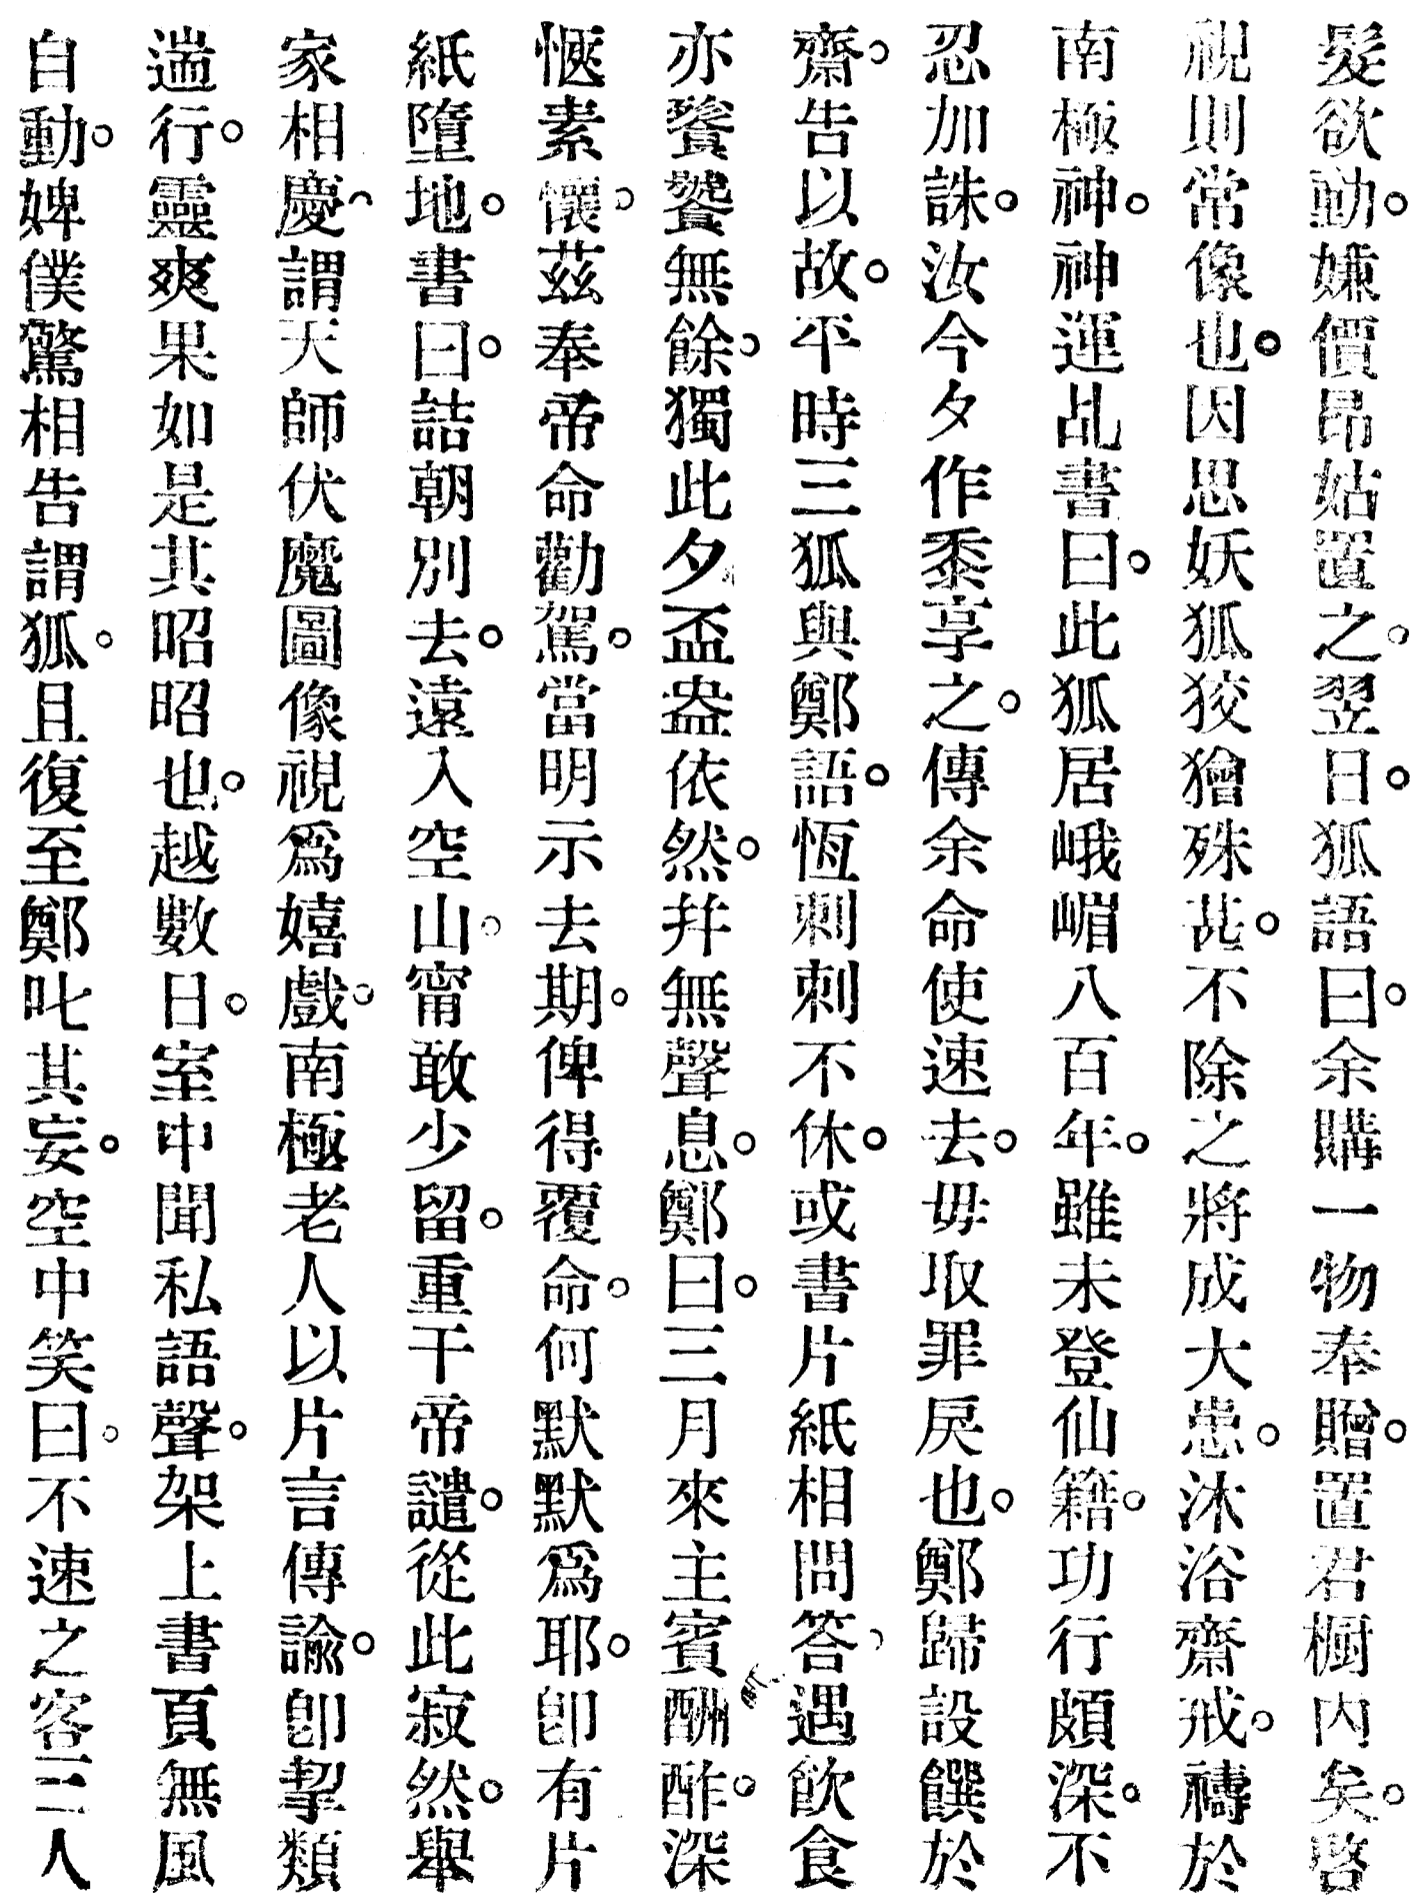 髮欲動。嫌價昂姑置之。翌日。狐語曰。余購一物奉贈。置君櫥内矣。啓
視則常像也。因思妖狐狡獪殊甚。不除之將成大患。沐浴齋戒。禱於
南極神。神運乩書曰。此狐居峨嵋八百年。雖未登仙籍。功行頗深。不
忍加誅。汝今夕作黍享之。傳余命使速去。毋取罪戾也。鄭歸設饌於
齋。告以故。平時三狐與鄭語。恆刺刺不休。或書片紙相問答。遇飲食
亦餮饕無餘。獨此夕盃盎依然。幷無聲息。鄭曰。三月來主賓酬酢。深
愜素懷。茲奉帝命勸駕。當明示去期。俾得覆命。何默默爲耶。卽有片
紙墮地。書曰。詰朝別去。遠入空山。甯敢少留。重干帝譴。從此寂然。舉
家相慶。謂天師伏魔圖像視爲嬉戲。南極老人以片言傳諭。卽挈類
遄行。靈爽果如是其昭昭也。越數日。室中聞私語聲。架上書頁無風
自動。婢僕驚相告謂狐。且復至鄭叱其妄。空中笑曰。不速之客三人